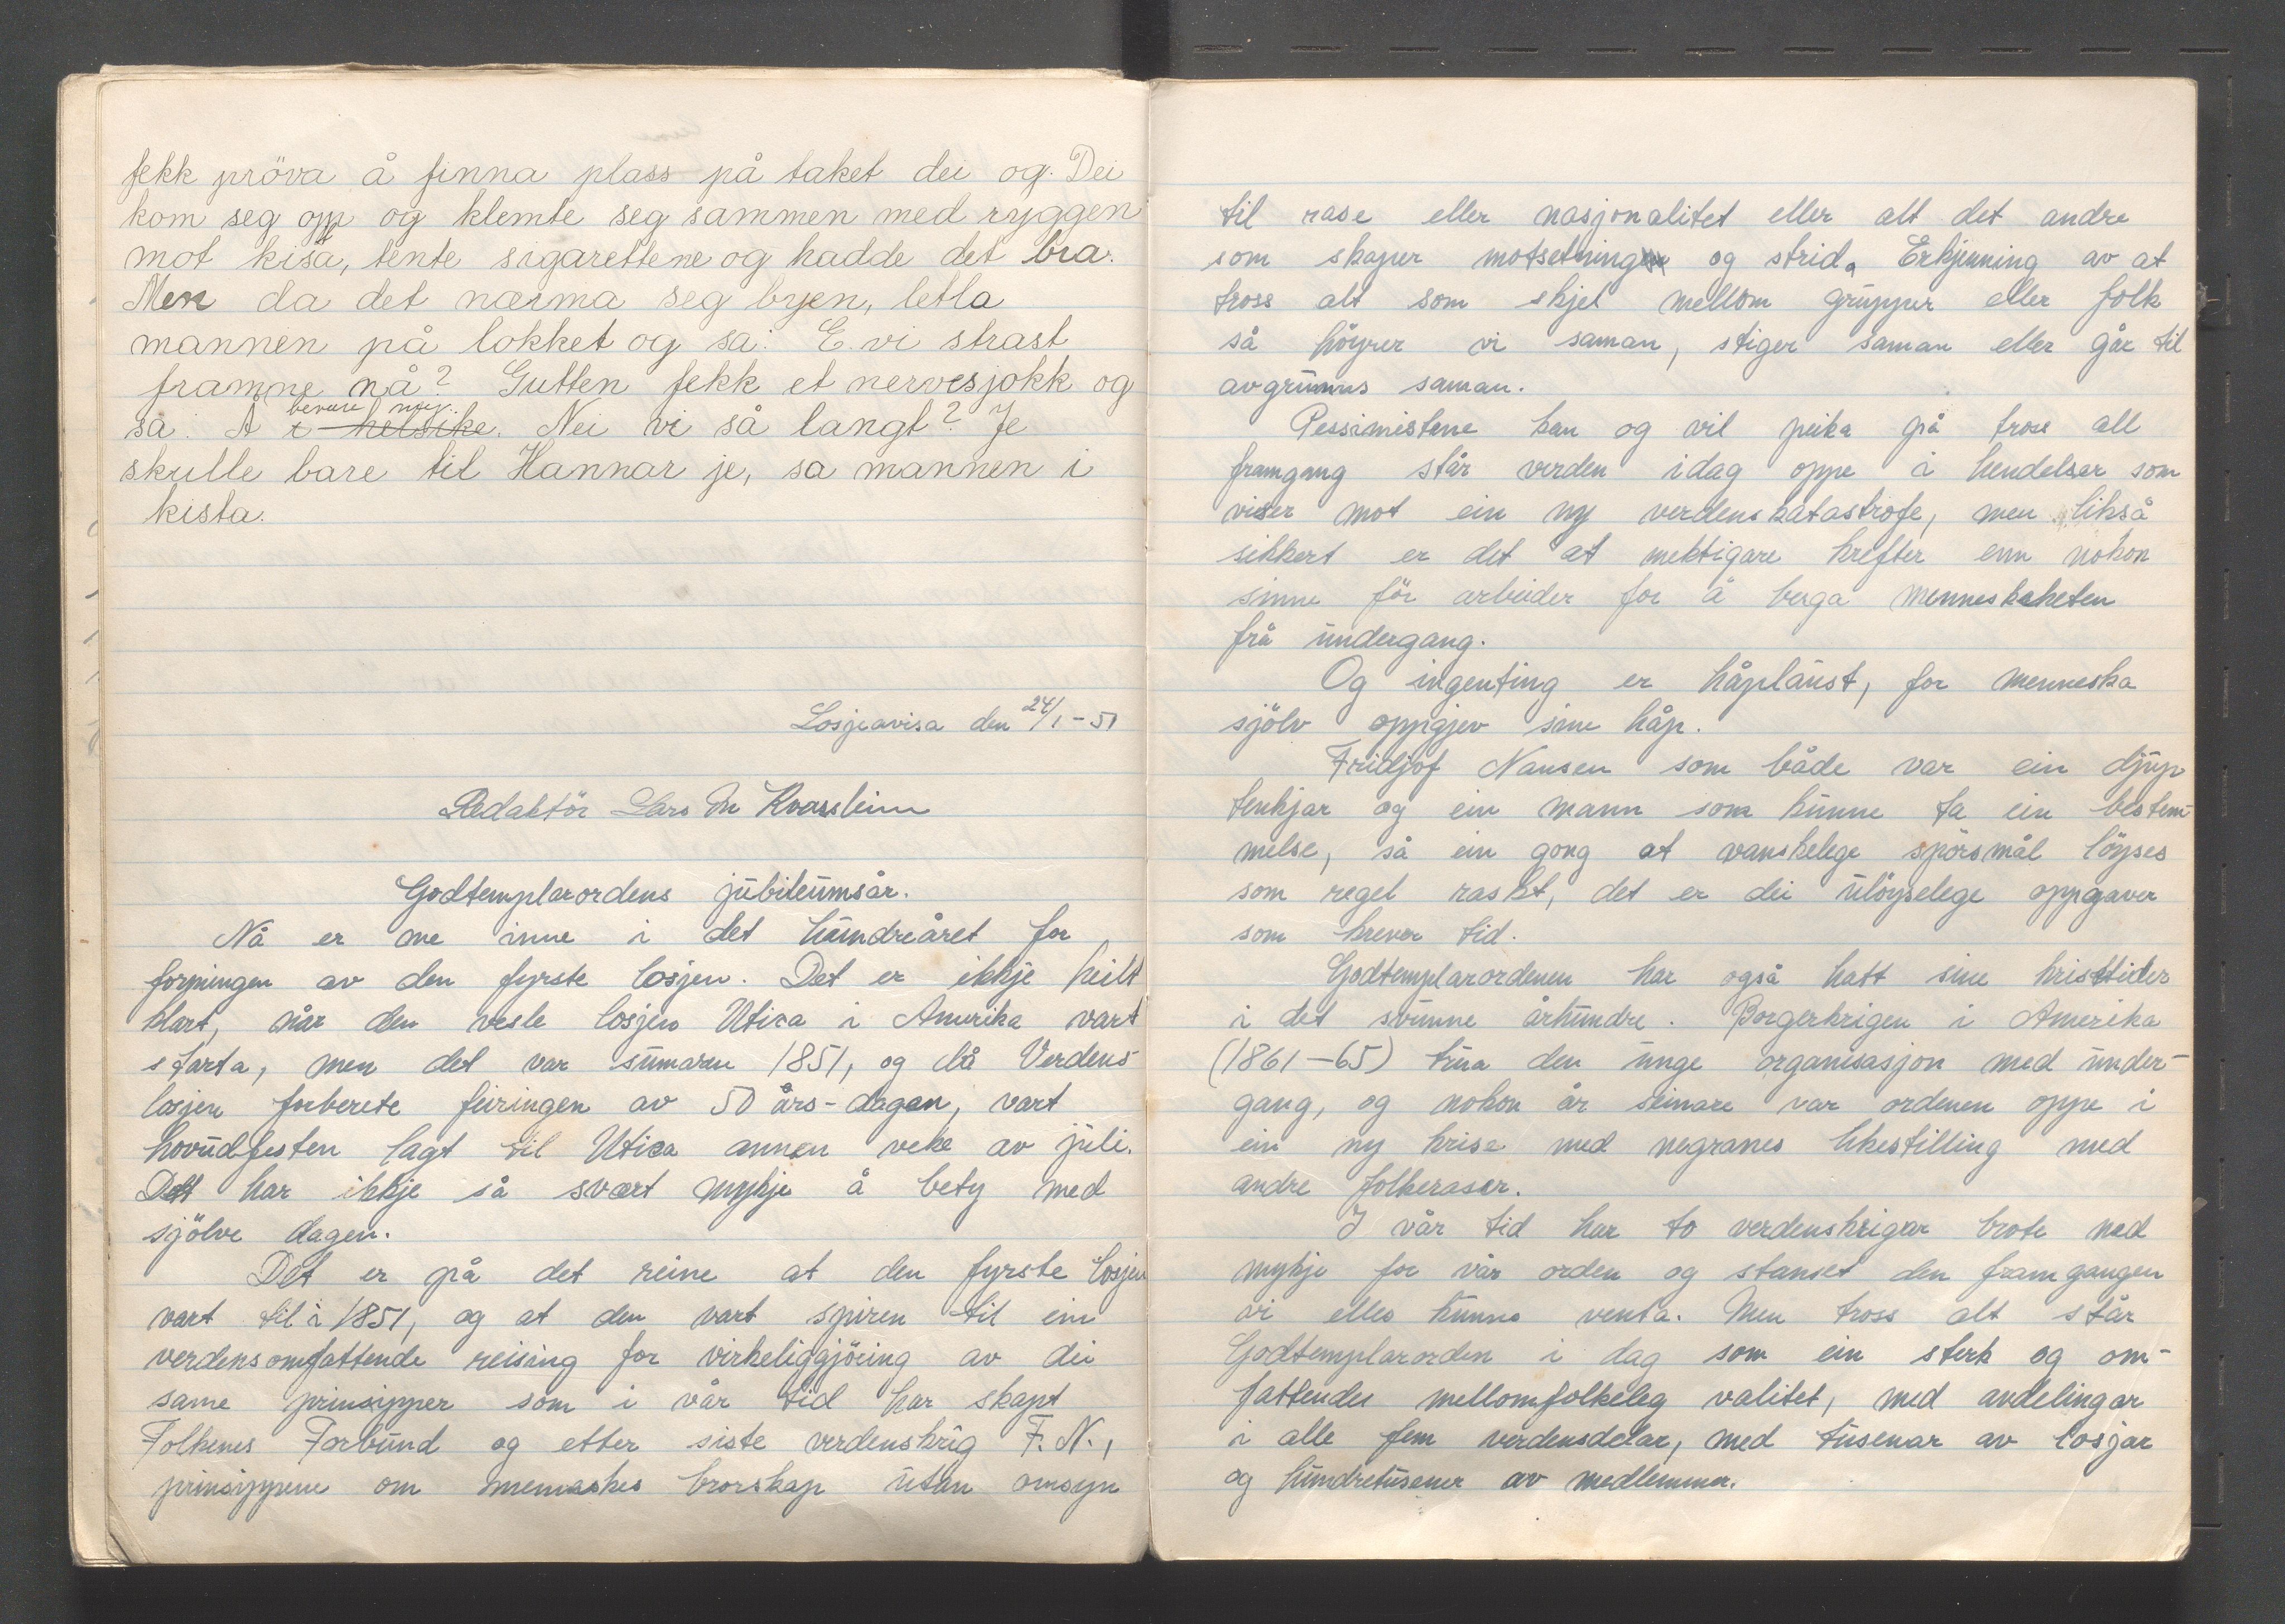 fekk pröva å finna plass på taket dei og. Dei
kom seg opp og klemte seg sammen med ryggen
mot kisa, tente sigarettene og hadde det bra.
Men da det nærma seg byen, letla
mannen på lokket og sa: E vi strast
framme nå? Gutten fekk et nervesjokk og
bevare meg.
sa. Å i helsike. Nei vi så langt? Je
skulle bare til Hannar je, sa mannen i
kista.
Losjeavisa den 24/1-51
Redaktör Lars M Kvassheim
Godtemplarordens jubileumsår.
Nå er me inne i det hundreåret for
forningen av den fyrste losjen. Det er ikkje heilt
klart, når den vesle losjen Utica i Amerika vart
starta, men det var sumaren 1851, og då Verdens-
losjen forberete feiringen av 50 års-dagen, vart
hovudfesten lagt til Utica annen veke av juli.
Dett har ikkje så svært mykje å bety med
sjölve dagen.
Det er på det reine at den fyrste losjen
vart til i 1851, og at den vart spiren til ein
verdensomfattende reising for virkeliggjöring av dei
same prinsipper som i vår tid har skapt
Folkenes Forbund og etter siste verdenskrig F.N.,
prinsippene om menneskes brorskap uten omsyn
til rase eller nasjonalitet eller alt det andre
som skaper motsetninger og strid. Erkjenning av at
tross alt som skjel mellom grupper eller folk
så höyrer vi saman, stiger saman eller går til
avgrunns saman.
Pessimistene kan og vil peika på tross all
framgang står verden idag oppe i hendelser som
viser mot ein ny verdenskatastrofe, men likså
sikkert er det at mektigare krefter enn nokon
sinne för arbeider for å berga menneskeheten
frå undergang.
Og ingenting er håplaust, for menneska
sjölv oppgjev sine håp.
Fridjof Nansen som både var ein djup
tenkjar og ein mann som kunne ta ein bestem-
melse, så ein gong at vanskelege spörsmål löyses
som regel raskt, det er dei ulöyselege oppgaver
som krever tid.
Godtemplarordenen har også hatt sine krisetider
i det svunne århundre. Borgerkrigen i Amerika
(1861-65) trua den unge organisasjon med under-
gang, og nokon år seinare var ordenen oppe i
ein ny krise med negranes likestilling med
andre folkeraser.
I vår tid har to verdenskrigar brote ned
mykje for vår orden og stanset den framgangen
vi elles kunne venta. Men tross alt står
Godtemplarorden i dag som ein sterk og om-
fattender mellomfolkeleg valitet, med avdelingar
i alle fem verdensdelar, med tusenar av losjar
og hundretusener av medlemmer.